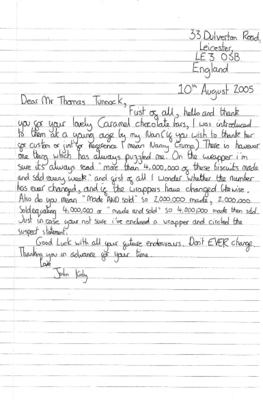 33 Dulverton Road,
Leicester,
LE3 0SB
England
10th August 2005
Dear Mr Thomas Tunnock,
First of all, hello and thank
you for your lovely Caramel chocolate bars, I was introduced
to them at a young age by my Nan (if you wish to thank her
for custom or just for reference I mean Nanny Crump) There is however
one thing which has always puzzled me. On the wrapper i'm
sure its always read "more than 4,000,000 of these biscuits made
and sold every week" and first of all I wonder whether the number
has ever changed, and if the wrappers have changed likewise.
Also do you mean "Made AND sold" so 2,000,000 made, 2,000,000
sold equalling 4,000,000 or "made and sold" so 4,000,000 made then sold.
Just in case your not sure i've enclosed a wrapper and circled the
suspect statement.
Good Luck with all your future endeavours. Dont EVER change.
Thanking you in advance for your time.
Love
John